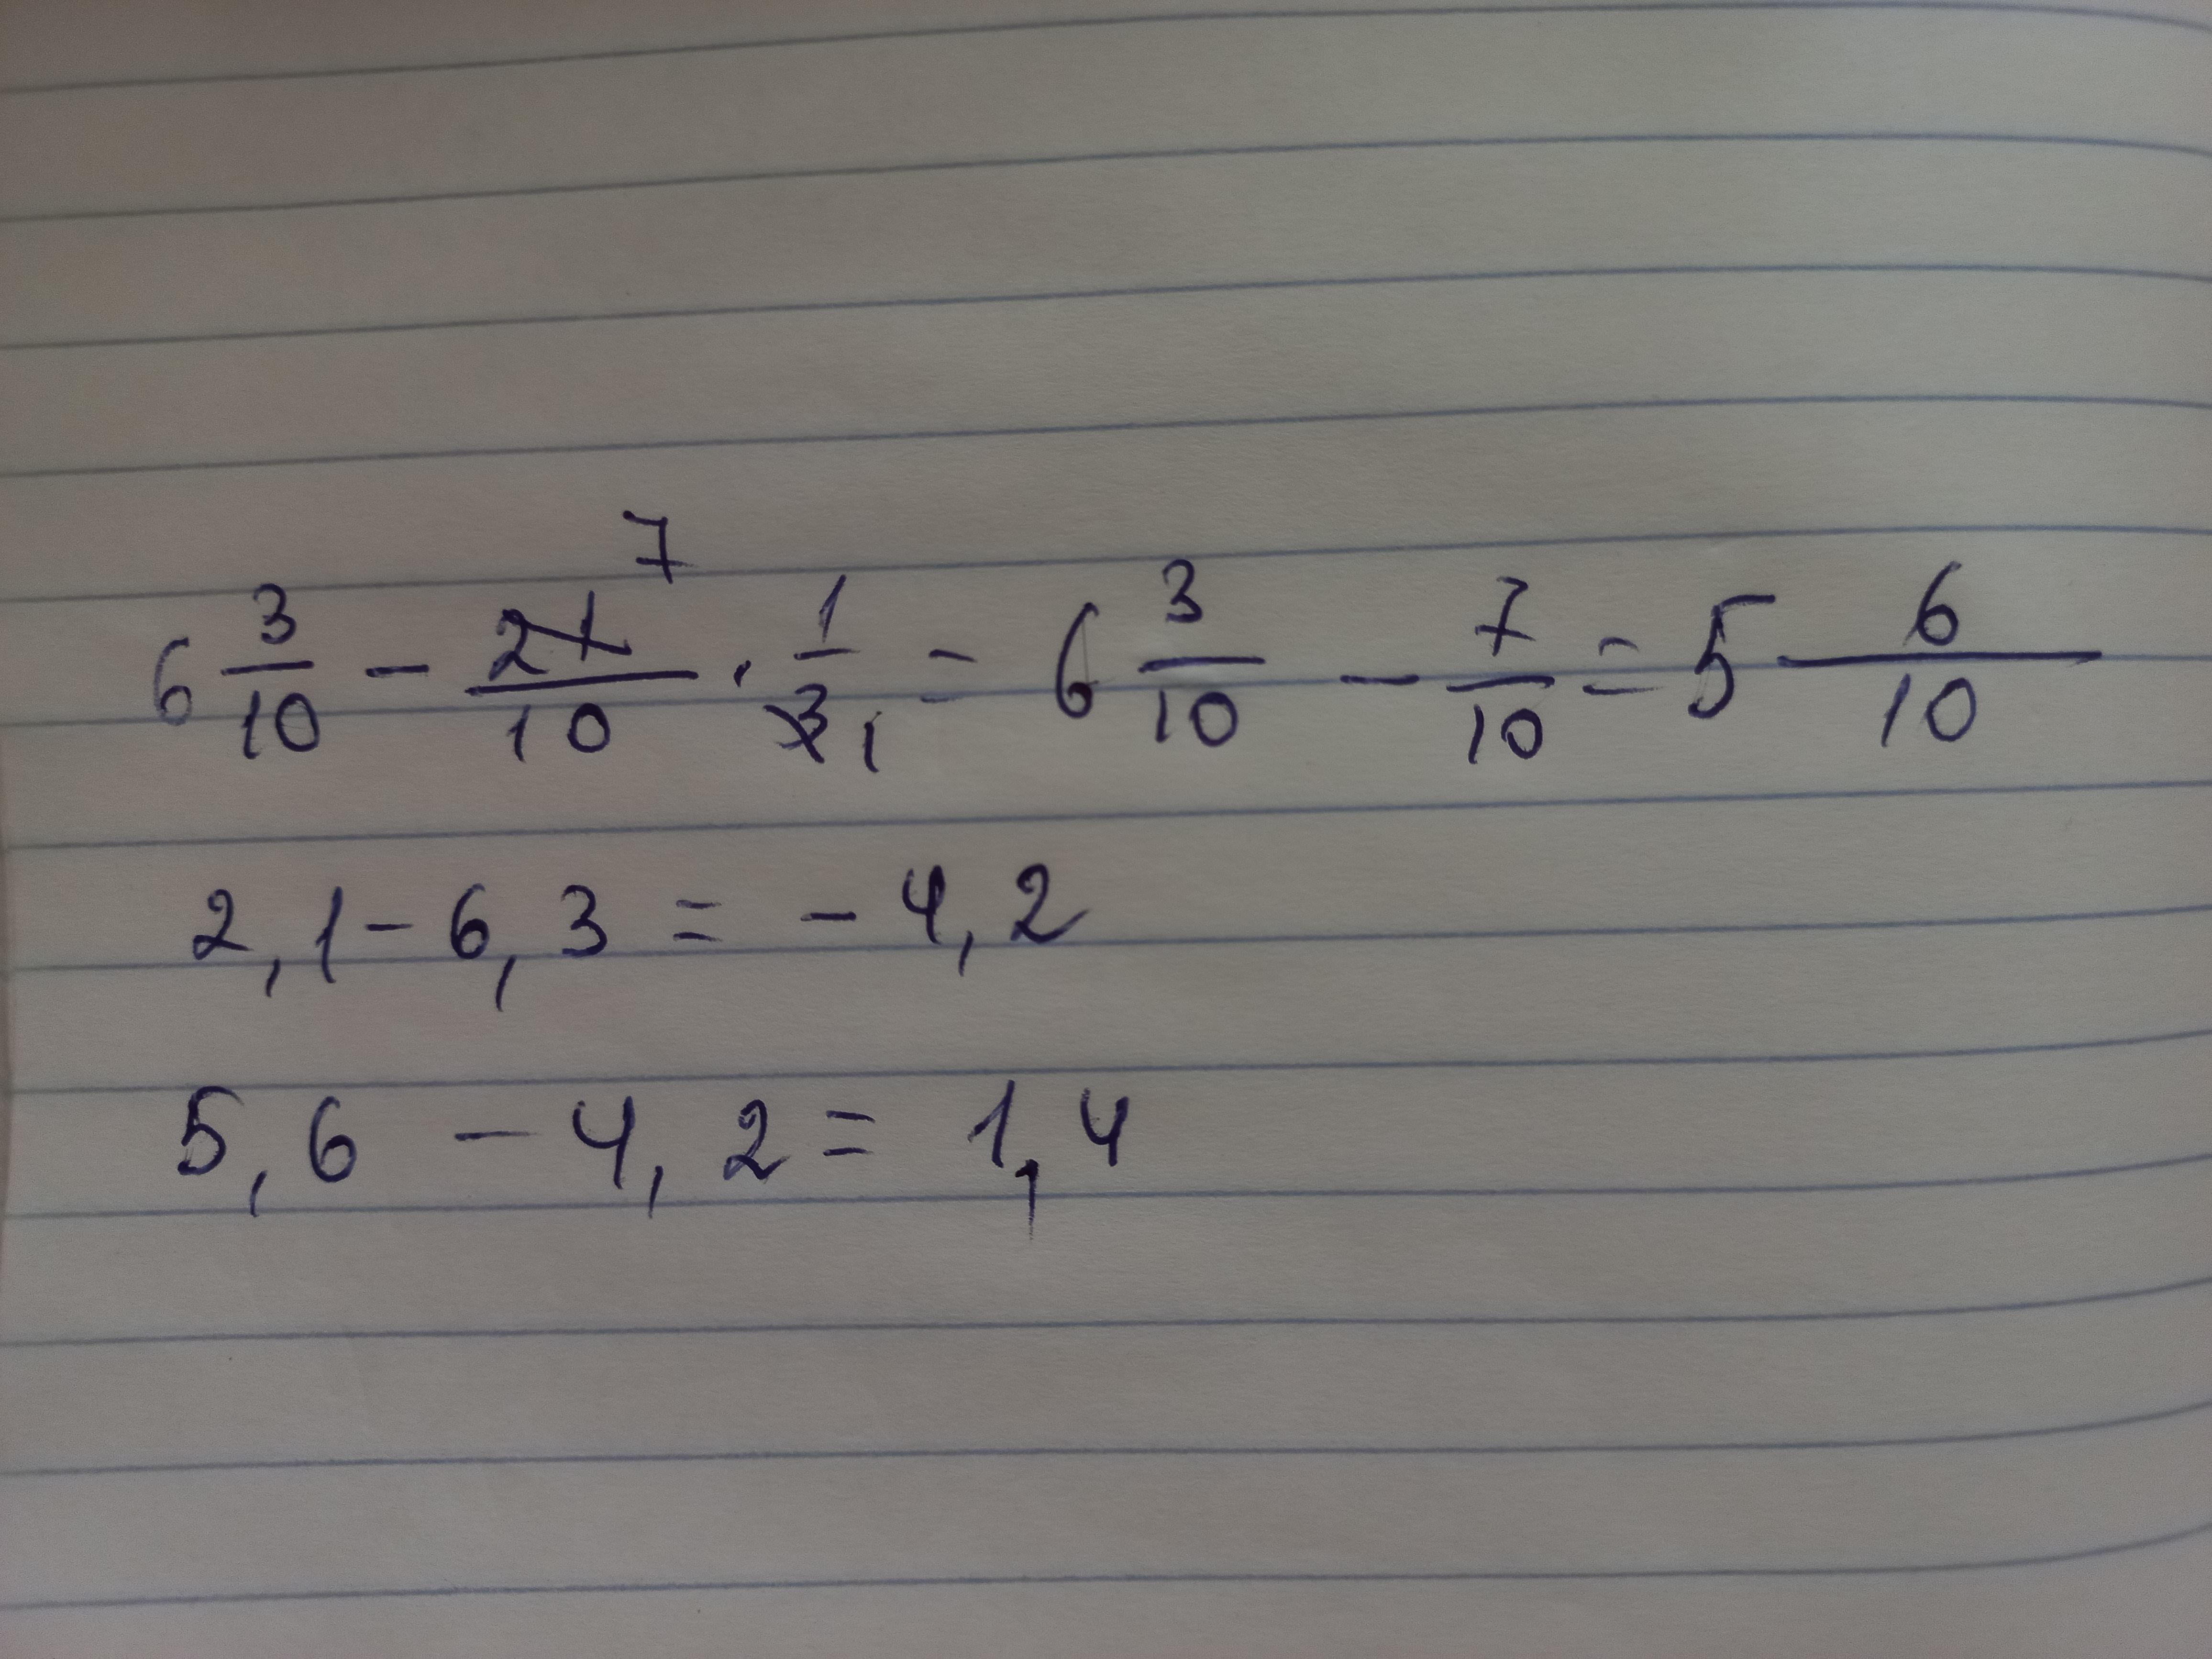 6 3/10 - 21/10 7 · 1/3 1 = 6 3/10 - 7/10 = 5 6/10
2,1 - 6,3 = - 4,2
5,6 - 4,2 = 1,4